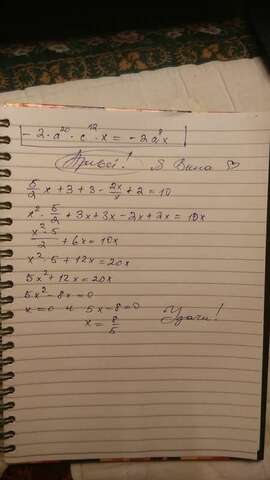 - 2 · a²⁰ · c¹² · x = - 2a⁸x
Привет! Я Вика ♡
5/2 x + 3 + 3 - 2x/x + 2 = 10
x² · 5/2 + 3x + 3x - 2x + 2x = 10x
x² · 5/2 + 6x = 10x
x² · 5 + 12x = 20x
5x² + 12x = 20x
5x² - 8x = 0
x = 0 и 5x - 8 = 0 Удачи!
x = 8/5